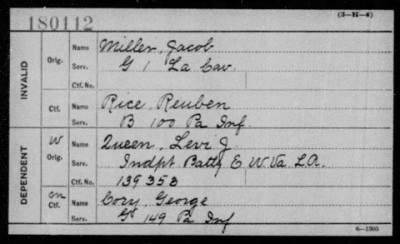 180112
(3-H-4)
INVALID
Orig.
Name Miller, Jacob
Serv. G 1 La Cav.
Ctf. No.
Ctf.
Name Rice, Reuben
Serv. B 100 Pa Inf.
DEPENDENT
W
Orig.
Name Queen, Levi J.
Serv. Indpt. Batty E W Va L.A.
Ctf. No. 139353
Ctf.
Name Cory, George
Serv. 149 Pa Inf
6-1905